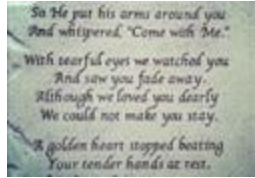 So He put his arms around you
And whispered, "Come with Me."
With tearful eyes we watched you
And saw you fade away.
Although we loved you dearly
We could not make you stay.
A golden heart stopped beating
Your tender hands at rest.